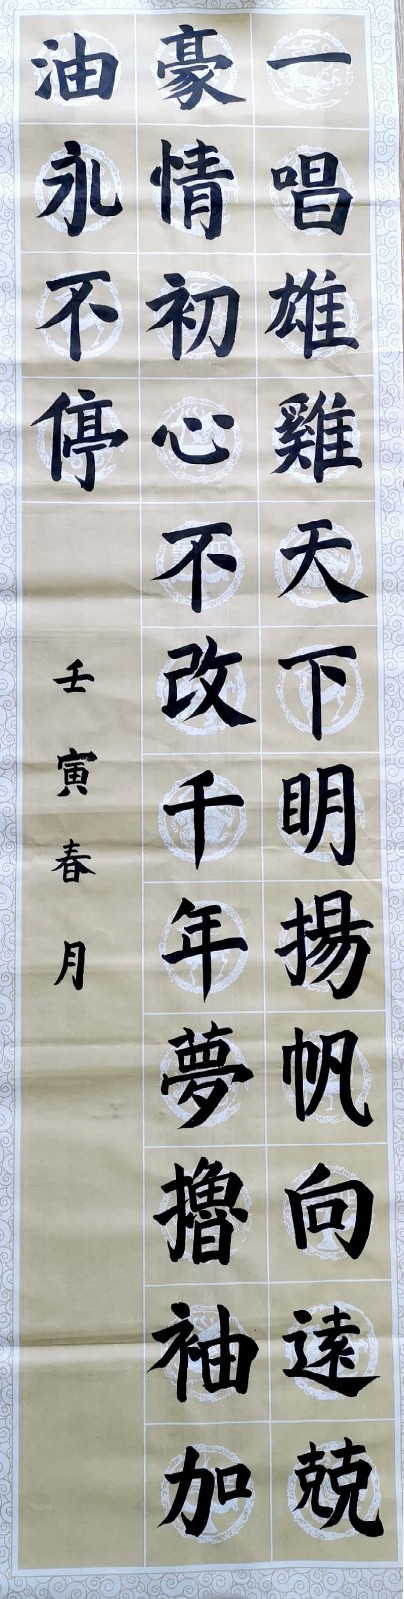 一唱雄雞天下明揚帆向遠兢
豪情初心不改千年夢擼袖加
油永不停
壬寅春月